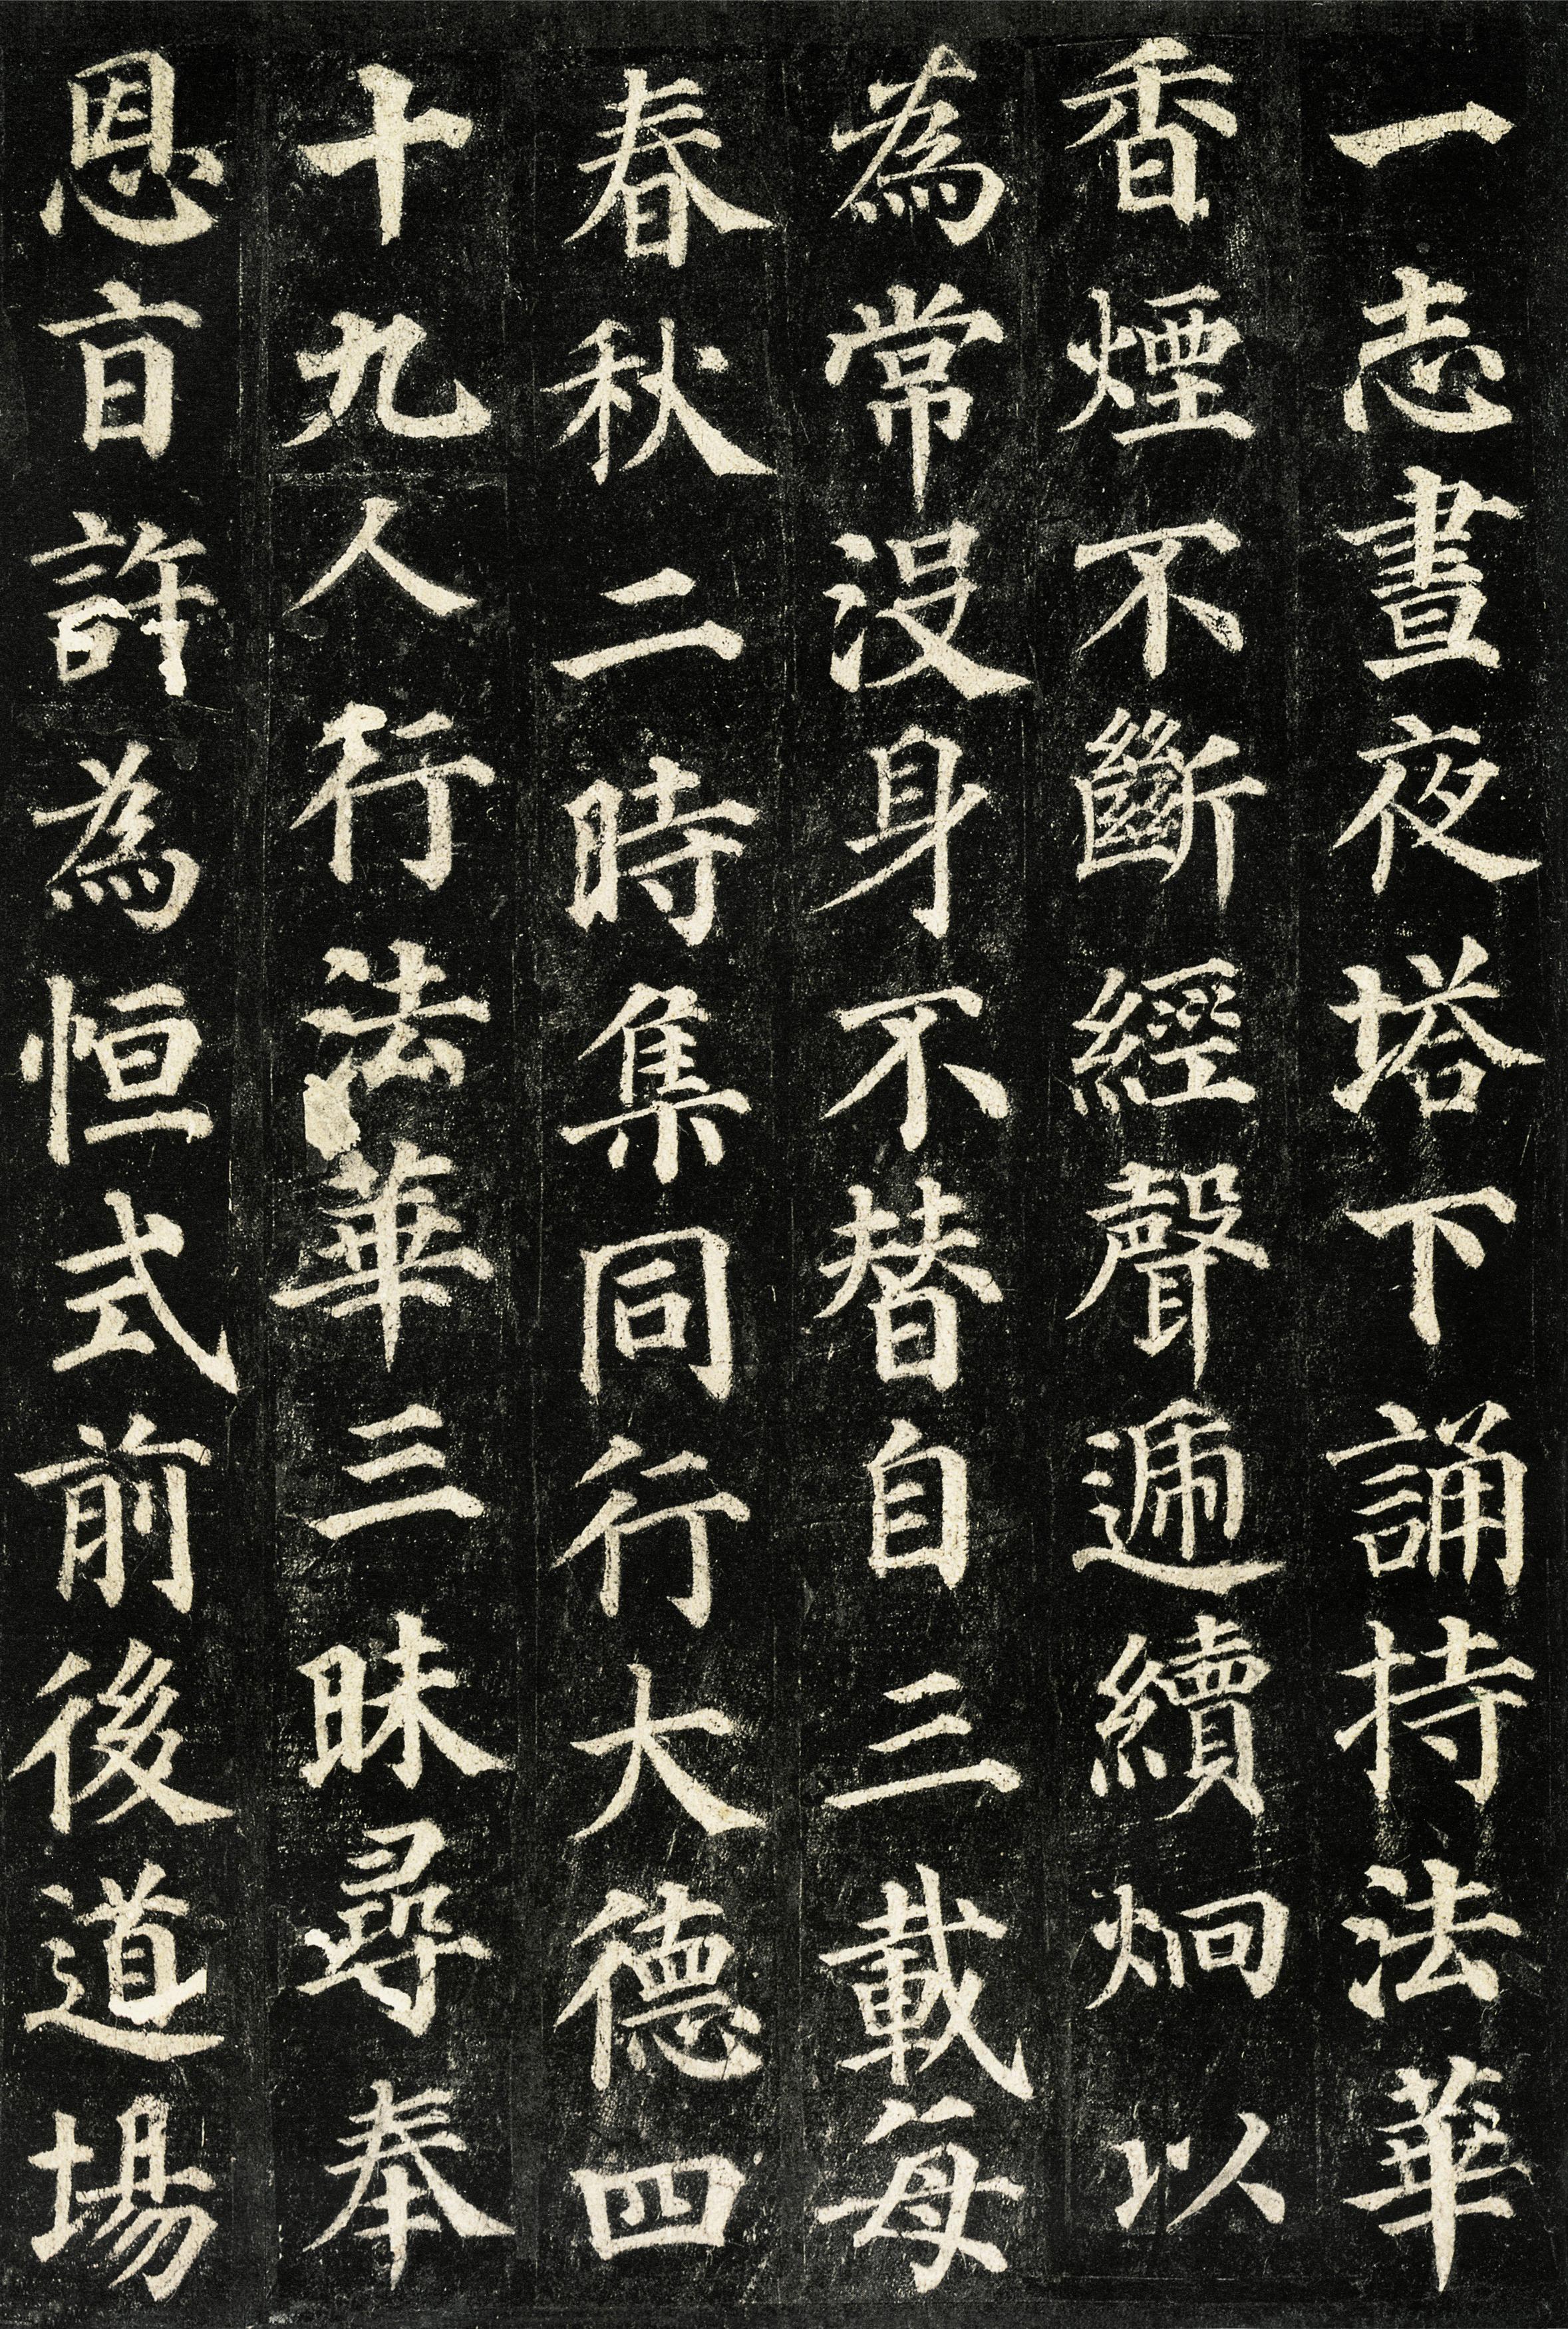 一志晝夜塔下誦持法華
香煙不斷經聲遞續炯以
為常沒身不替自三載每
春秋二時集同行大德四
十九人行法華三昧尋奉
恩旨許為恒式前後道場